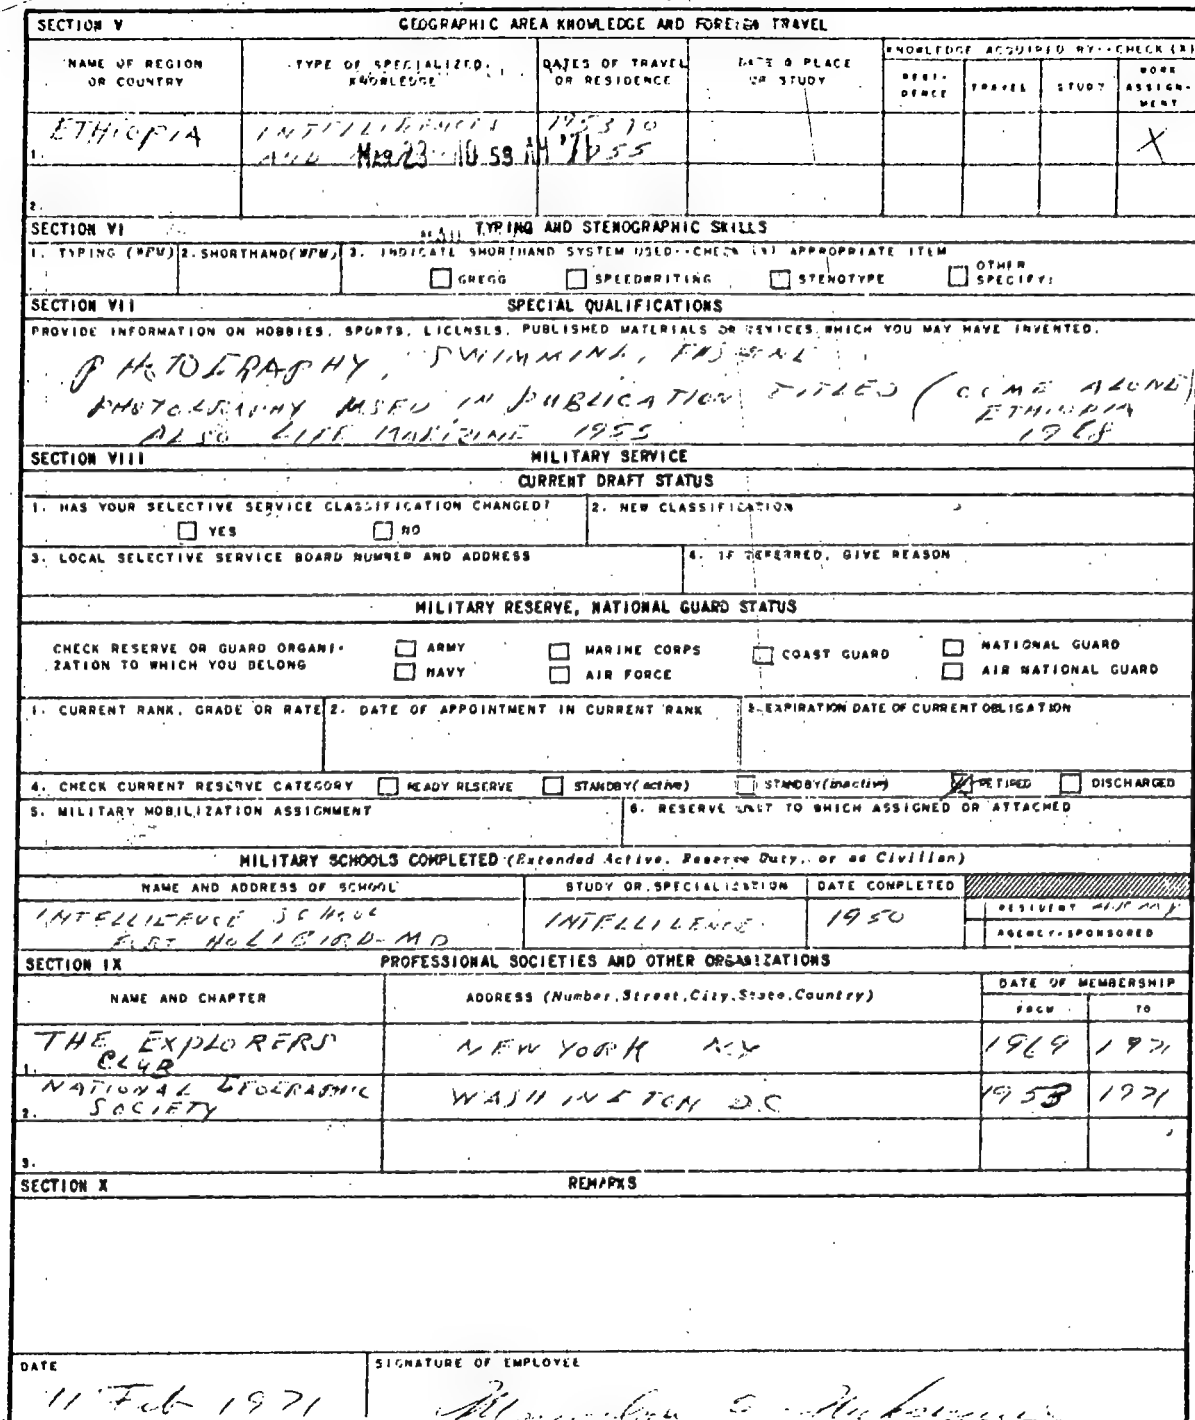 SECTION V GEOGRAPHIC AREA KNOWLEDGE AND FOREIGN TRAVEL
NAME OF REGION OR COUNTRY
TYPE OF SPECIALIZED KNOWLEDGE
DATES OF TRAVEL OR RESIDENCE
DATE & PLACE OF STUDY
KNOWLEDGE ACQUIRED BY--CHECK (X)
RESI-DENCE TRAVEL STUDY WORK ASSIGN-MENT
1. ETHIOPIA 1953 TO X
MAR 23 10 59 AM '71 55
2.
SECTION VI TYPING AND STENOGRAPHIC SKILLS
1. TYPING (WPM) 2. SHORTHAND(WPM) 3. INDICATE SHORTHAND SYSTEM USED--CHECK (X) APPROPRIATE ITEM
GREGG SPEEDWRITING STENOTYPE OTHER SPECIFY:
SECTION VII SPECIAL QUALIFICATIONS
PROVIDE INFORMATION ON HOBBIES, SPORTS, LICENSES, PUBLISHED MATERIALS OR DEVICES WHICH YOU MAY HAVE INVENTED.
PHOTOGRAPHY, SWIMMING,
PHOTOGRAPHY USED IN PUBLICATION TITLED (COME ALONG)
ETHIOPIA
ALSO LIFE MAGIZINE 1955 1968
SECTION VIII MILITARY SERVICE
CURRENT DRAFT STATUS
1. HAS YOUR SELECTIVE SERVICE CLASSIFICATION CHANGED? 2. NEW CLASSIFICATION
YES NO
3. LOCAL SELECTIVE SERVICE BOARD NUMBER AND ADDRESS 4. IF DEFERRED, GIVE REASON
MILITARY RESERVE, NATIONAL GUARD STATUS
CHECK RESERVE OR GUARD ORGANI-ZATION TO WHICH YOU BELONG
ARMY MARINE CORPS COAST GUARD NATIONAL GUARD
NAVY AIR FORCE AIR NATIONAL GUARD
1. CURRENT RANK, GRADE OR RATE 2. DATE OF APPOINTMENT IN CURRENT RANK 3. EXPIRATION DATE OF CURRENT OBLIGATION
4. CHECK CURRENT RESERVE CATEGORY READY RESERVE STANDBY(active) STANDBY(inactive) RETIRED DISCHARGED
5. MILITARY MOBILIZATION ASSIGNMENT 6. RESERVE UNIT TO WHICH ASSIGNED OR ATTACHED
MILITARY SCHOOLS COMPLETED (Extended Active, Reserve Duty, or as Civilian)
NAME AND ADDRESS OF SCHOOL STUDY OR SPECIALIZATION DATE COMPLETED
INTELLIGENCE SCHOOL INTELLIGENCE 1950 RESIDENT
FORT HOLIBIRD-MD AGENCY-SPONSORED
SECTION IX PROFESSIONAL SOCIETIES AND OTHER ORGANIZATIONS
NAME AND CHAPTER ADDRESS (Number,Street,City,State,Country) DATE OF MEMBERSHIP
FROM TO
1. THE EXPLORERS CLUB NEW YORK NY 1969 1971
2. NATIONAL GEOGRAPHIC SOCIETY WASHINGTON D.C 1953 1971
3.
SECTION X REMARKS
DATE SIGNATURE OF EMPLOYEE
11 Feb 1971